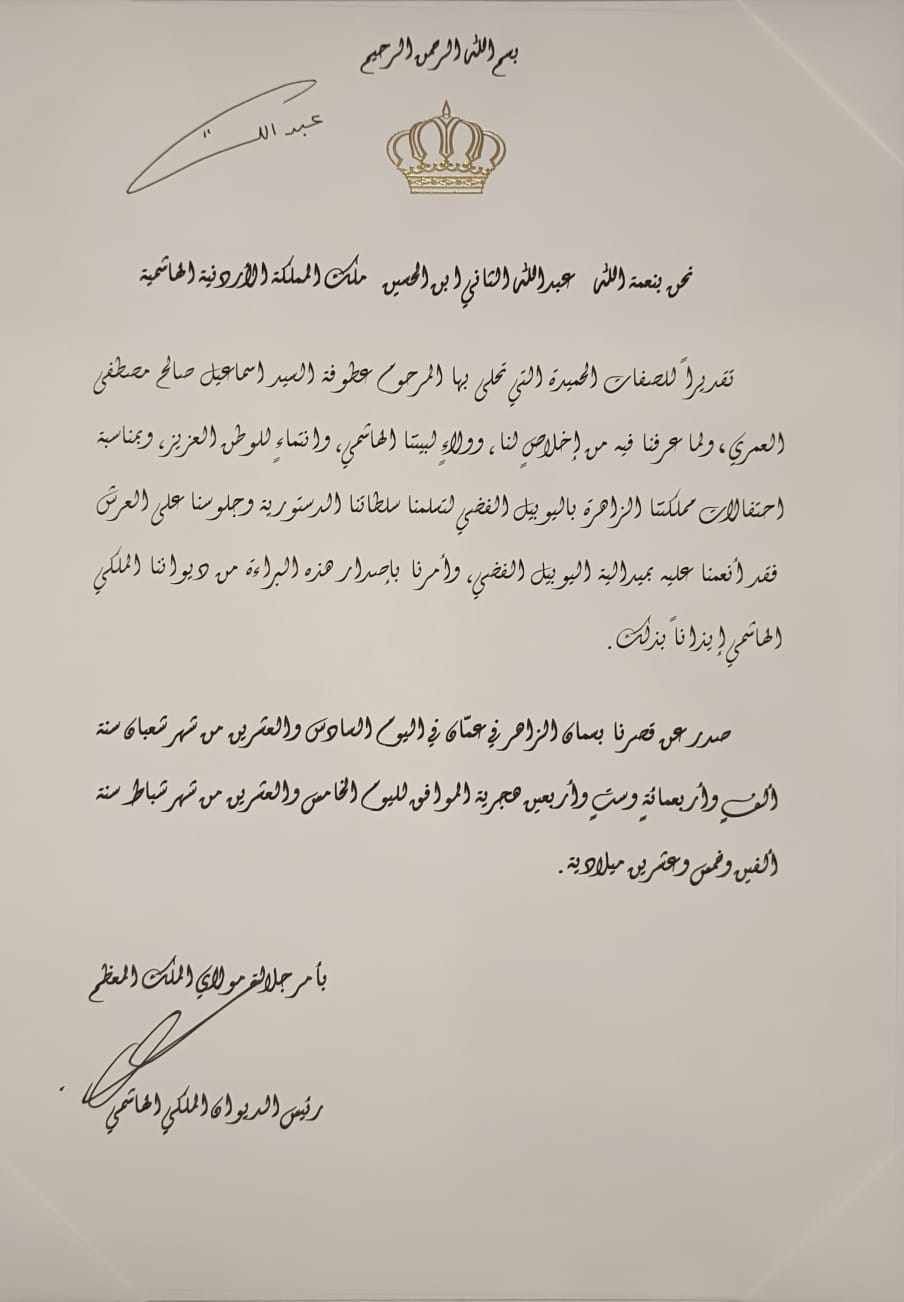 بسم الله الرحمن الرحيم
عبد الله
نحن بنعمة الله عبدالله الثاني ابن الحسين ملك المملكة الأردنية الهاشمية
تقديراً للصفات الحميدة التي تحلى بها المرحوم عطوفة السيد اسماعيل صالح مصطفى
العمري، ولما عرفنا فيه من إخلاصٍ لنا، وولاءٍ لبيتنا الهاشمي، وانتماءٍ للوطن العزيز، وبمناسبة
احتفالات مملكتنا الزاهرة باليوبيل الفضي لتسلمنا سلطاتنا الدستورية وجلوسنا على العرش
فقد أنعمنا عليه بميدالية اليوبيل الفضي، وأمرنا بإصدار هذه البراءة من ديواننا الملكي
الهاشمي إيذاناً بذلك.
صدر عن قصرنا بسمان الزاهر في عمّان في اليوم السادس والعشرين من شهر شعبان سنة
ألفٍ وأربعمائةٍ وستٍ وأربعين هجرية الموافق لليوم الخامس والعشرين من شهر شباط سنة
ألفين وخمس وعشرين ميلادية.
بأمر جلالة مولاي الملك المعظم
رئيس الديوان الملكي الهاشمي